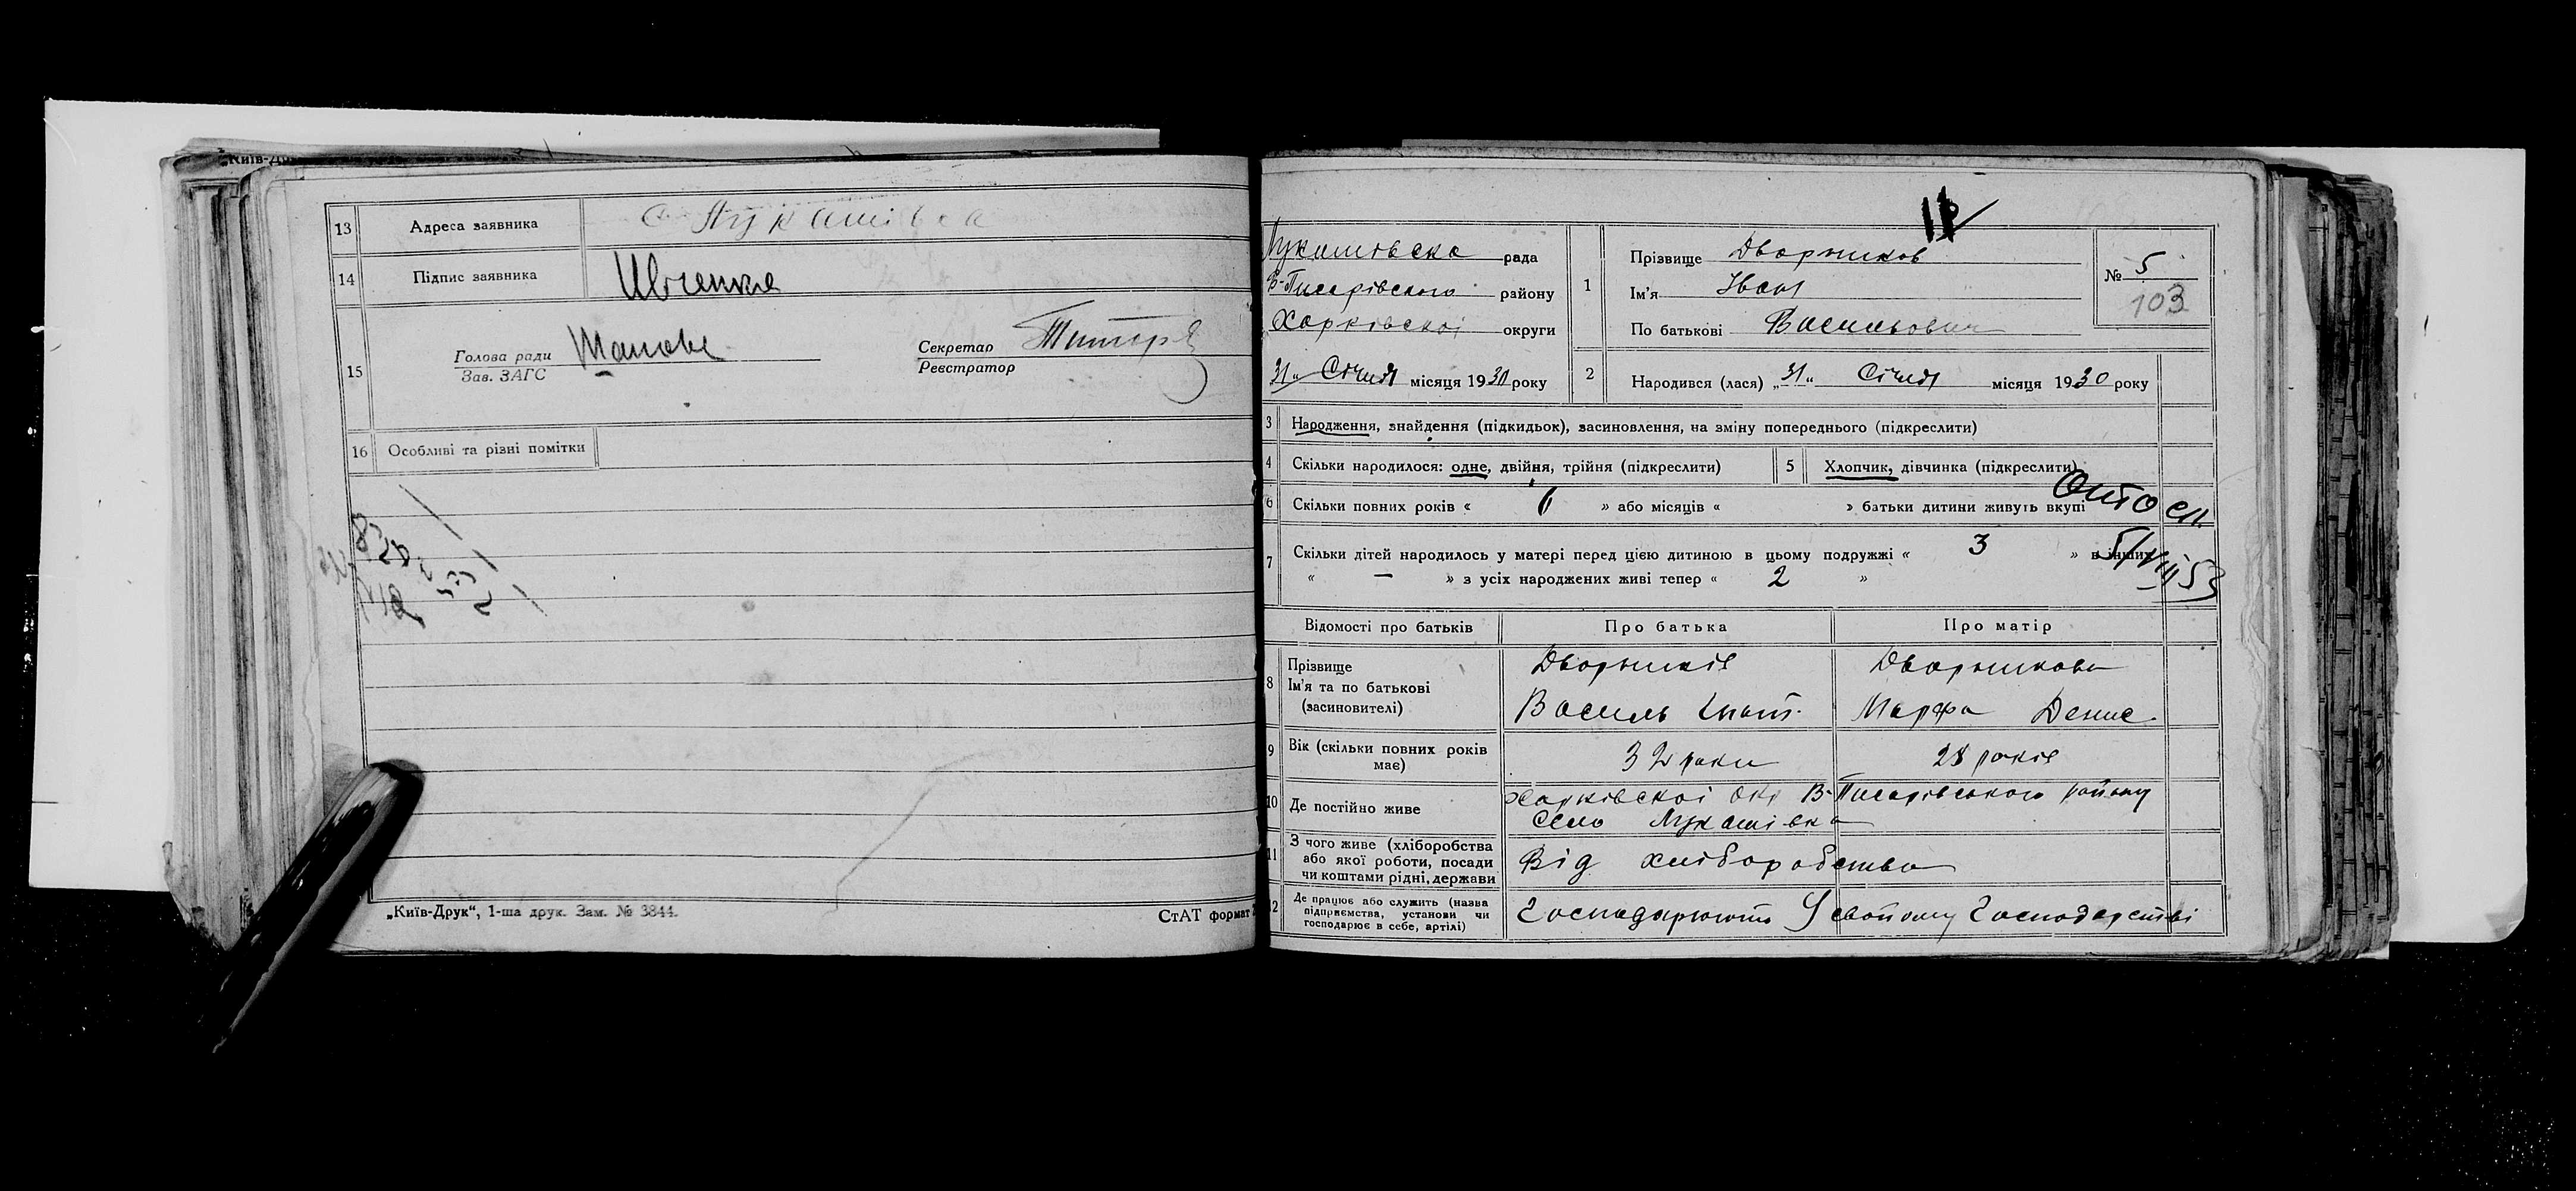 „Київ-Др
13 Адреса заявника с. Лукашівка
14 Підпис заявника Ивченко
15 Голова ради
Зав. ЗАГС
Секретар
Реєстратор
16 Особливі та різні помітки
„Київ-Друк“, 1-ша друк. Зам. № 3844.
СтАТ формат
Лукашовска рада
В-Писарівського району
Харківскої округи
31„ Січня місяця 1930 року
1 Прізвище Дворніков
Ім'я Іван
По батькові Васильович
№ 5
103
2 Народився (лася) „31„ Січня місяця 1930 року
3 Народження, знайдення (підкидьок), засиновлення, на зміну попереднього (підкреслити)
4 Скільки народилося: одне, двійня, трійня (підкреслити) 5 Хлопчик, дівчинка (підкреслити)
6 Скільки повних років « 6 » або місяців « » батьки дитини живуть вкупі
7 Скільки дітей народилось у матері перед цією дитиною в цьому подружжі « 3 » в інших
« — » з усіх народжених живі тепер « 2 »
5/VIII 53
Відомості про батьків Про батька Про матір
8 Прізвище
Ім'я та по батькові
(засиновителі)
Дворників
Василь Гнат.
Дворнікова
Марфа Денис.
9 Вік (скільки повних років
має)
32 роки
28 років
10 Де постійно живе
Харківскої Окр В-Писарівського району
Село Лукашівка
11 З чого живе (хліборобства
або якої роботи, посади
чи коштами рідні, держави
Від хліборобства
12 Де працює або служить (назва
підприємства, установи чи
господарює в себе, артілі)
Господарюють У своїому Господарстві